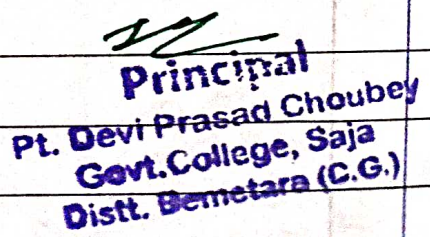 Principal
Pt. Devi Prasad Choubey
Govt.College, Saja
Distt. Bemetara (C.G.)